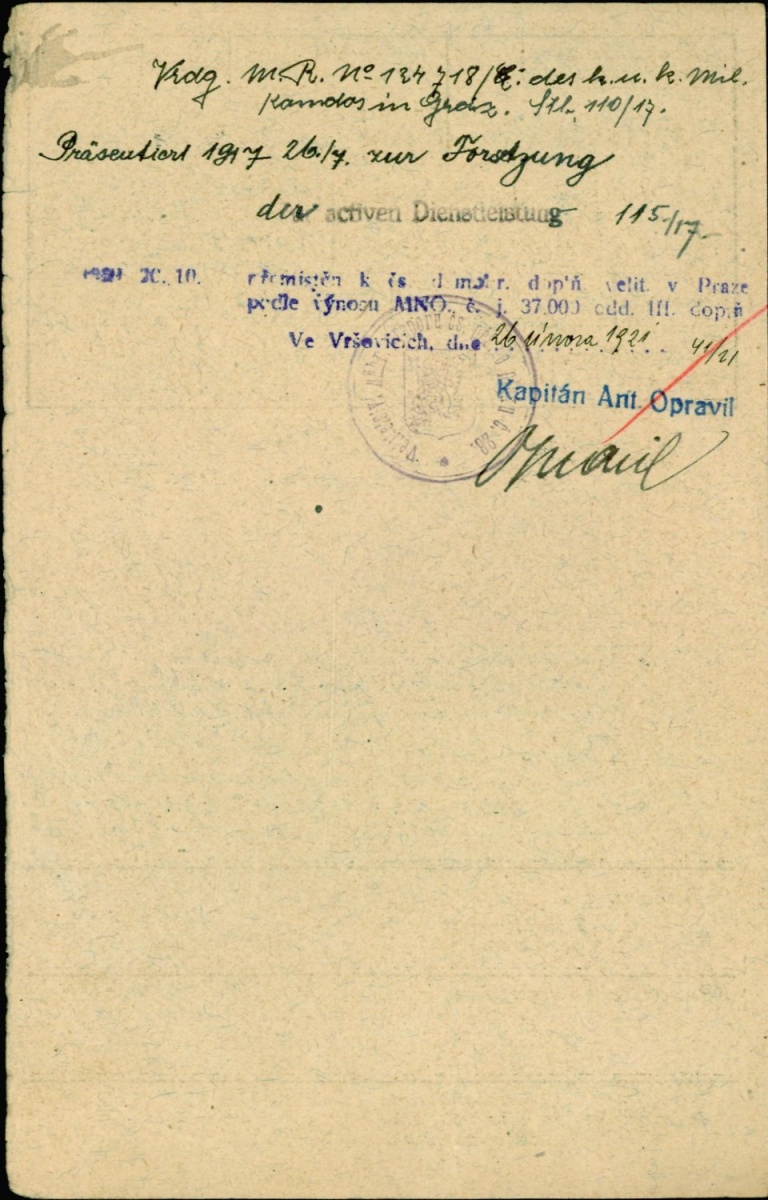 Vrdg. M.R. No 124718/E: des k. u. k. Mil.
Komdos in Graz. Stb. 110/17.
Präsentiert 1917 26./7. zur Forsetzung
der activen Dienstleistung 115/17.
20. 10. přemístěn k čs. doplň. velit. v Praze
podle výnosu MNO., č. j. 37.000 odd. III. doplň
Ve Vršovicích, dne 26 února 1921 41/21
Kapitán Ant. Opravil
Opravil